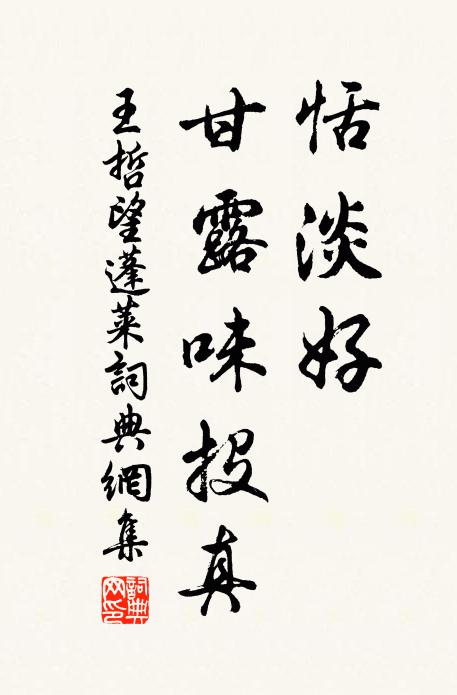 恬淡好
甘露味投真
王哲望蓬莱詞典網集
詞典网印